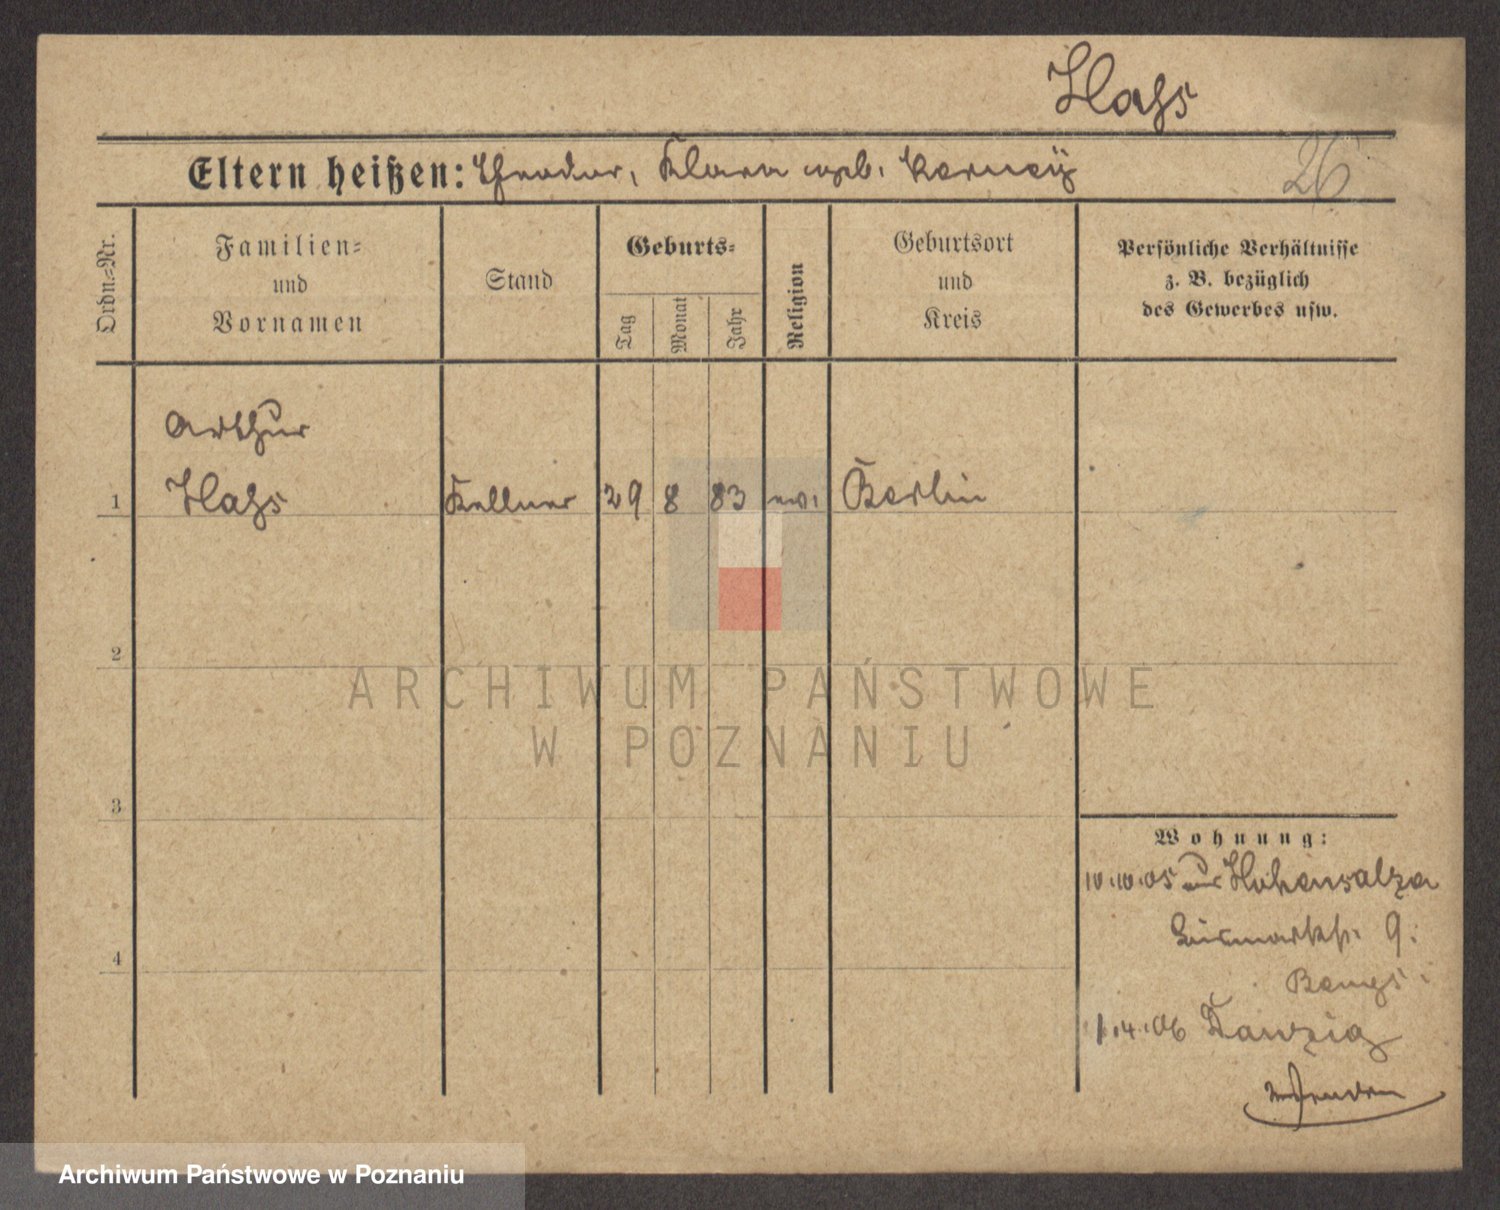 Hahs
26
Eltern heißen: Theodor, Klara geb.
Ordn.=Nr.
Familien=
und
Vornamen
Stand
Geburts=
Tag
Monat
Jahr
Religion
Geburtsort
und
Kreis
Persönliche Verhältnisse
z. B. bezüglich
des Gewerbes usw.
Arthur
1 Hahs Kellner 29 8 83 ev. Berlin
2
3
4
Wohnung:
10.10.05 aus Hohensalza
Bismarkstr. 9.
1.4.06 Danzig
ARCHIWUM PAŃSTWOWE
W POZNANIU
Archiwum Państwowe w Poznaniu